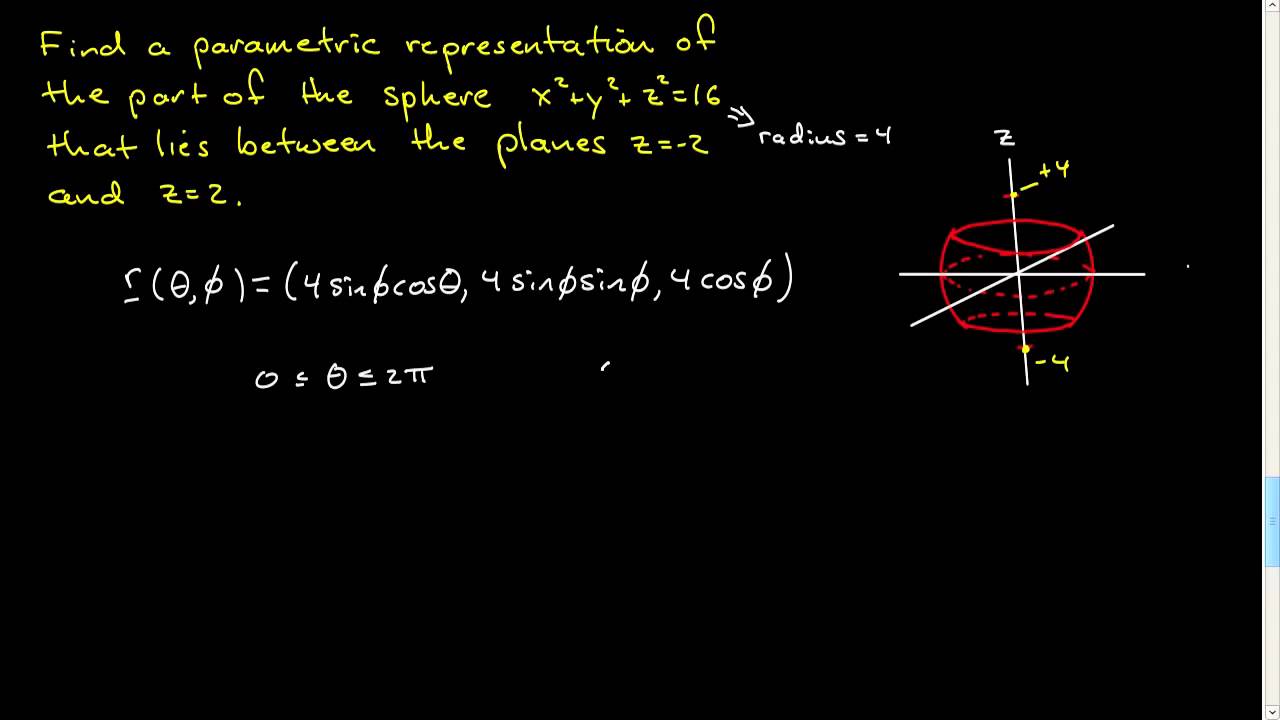 Find a parametric representation of
the part of the sphere x²+y²+z²=16
that lies between the planes z=-2
and z=2.
⇒ radius=4
z
+4
-4
r(θ,ϕ)=(4sinϕcosθ, 4sinϕsinϕ, 4cosϕ)
0≤θ≤2π